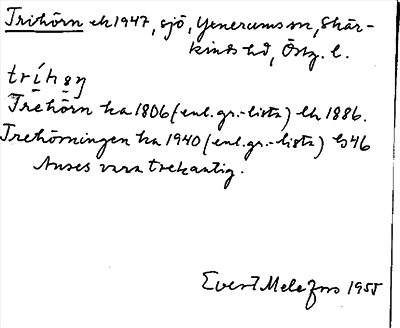 Trihörn ek 1947, sjö, Yxnerums sn, Skär-
kinds hd, Östg. l.
tríhəŋ
Trehörn ka 1806 (enl. gr.-lista) lk 1886.
Trehörningen ka 1940 (enl. gr.-lista) b 46
Anses vara trekantig.
Evert Melefors 1955